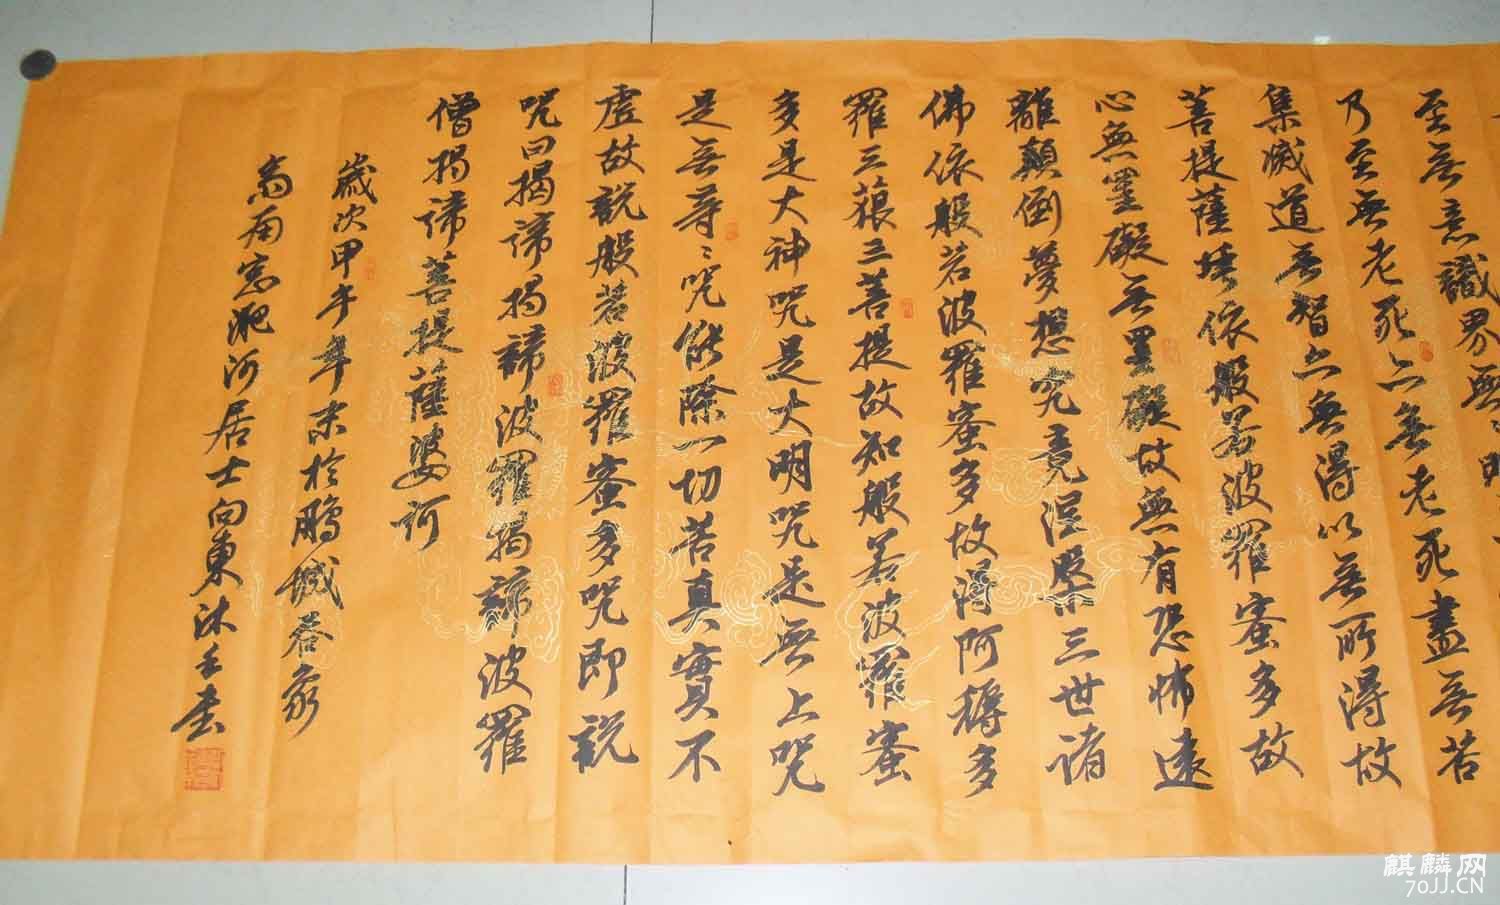 至無意識界無無明
乃至無老死亦無老死盡無苦
集滅道無智亦無得以無所得故
菩提薩埵依般若波羅蜜多故
心無罣礙無罣礙故無有恐怖遠
離顛倒夢想究竟涅槃三世諸
佛依般若波羅蜜多故得阿耨多
羅三藐三菩提故知般若波羅蜜
多是大神咒是大明咒是無上咒
是無等々咒能除一切苦真實不
虛故說般若波羅蜜多咒即說
咒曰揭諦揭諦波羅揭諦波羅
僧揭諦菩提薩婆訶
歲次甲午年末於鵬城
居士向東沐手書
麒麟网
70JJ.CN